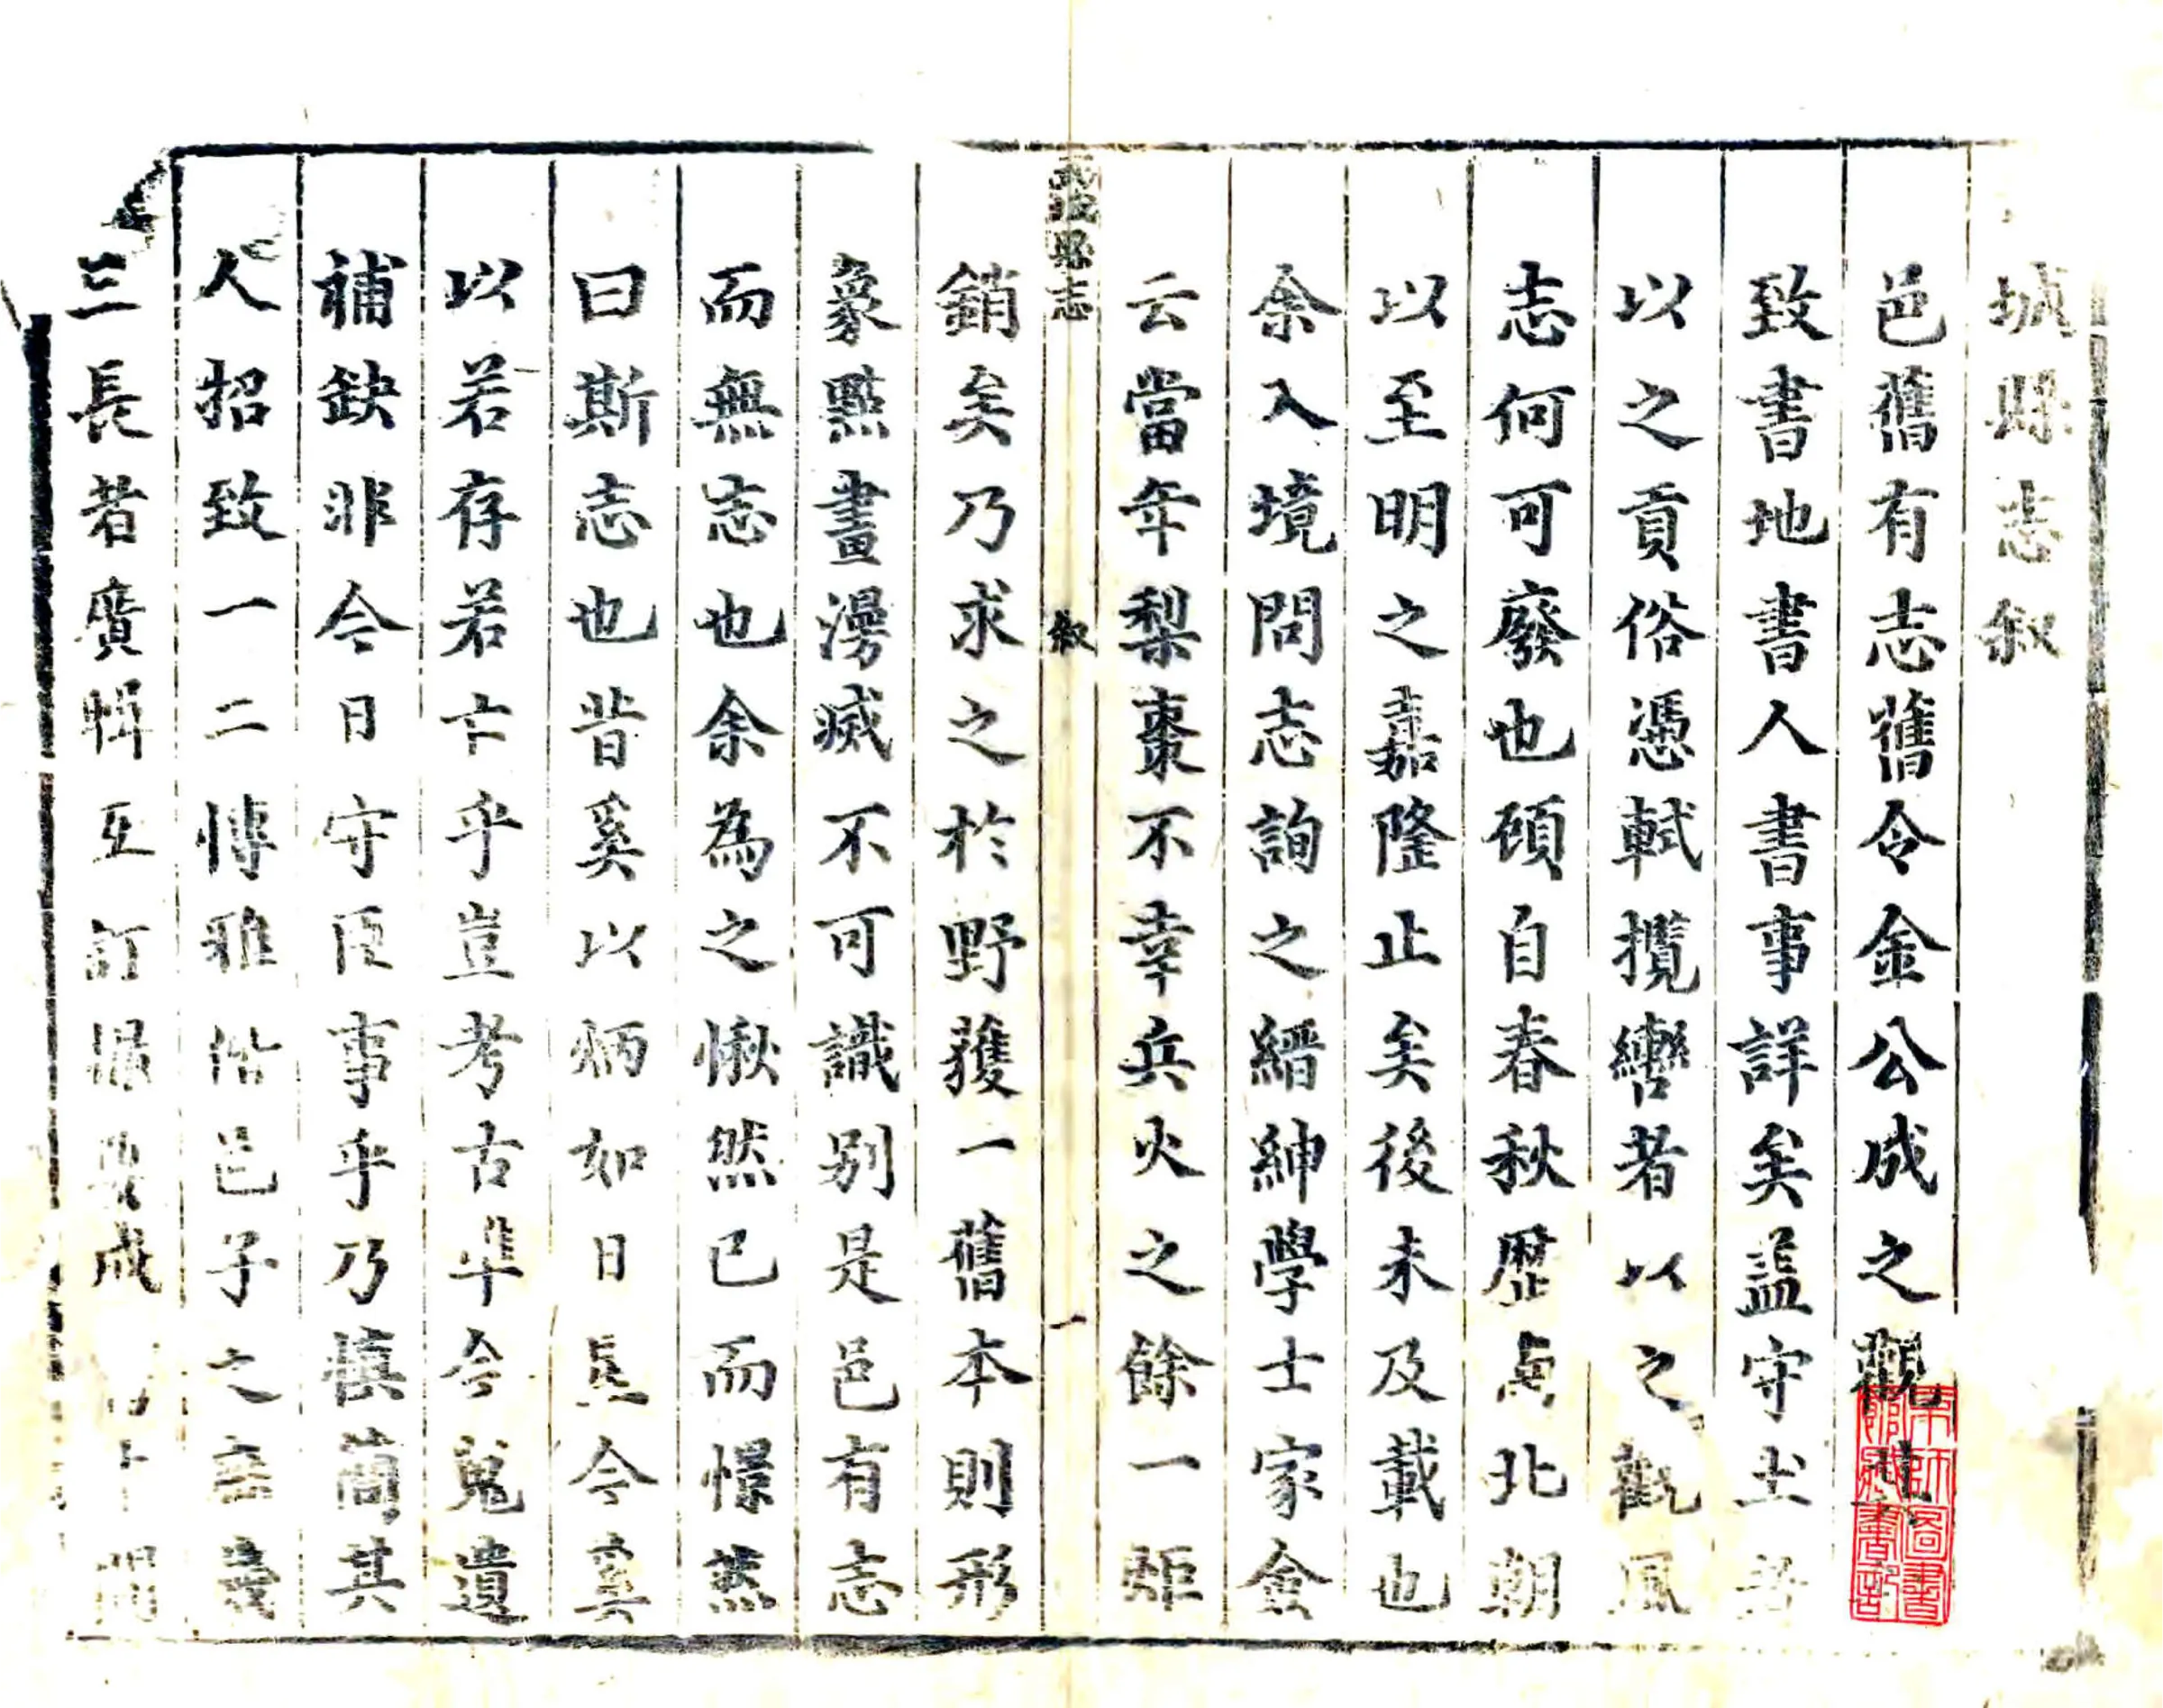 城縣志叙
邑舊有志舊令金公成之觀
致書地書人書事詳矣盖守土者
以之貢俗憑軾攬轡者以之觀風
志何可廢也頋自春秋歷貞北朝
以至明之嘉隆止矣後未及載也
余入境問志詢之縉紳學士家僉
云當年梨棗不幸兵火之餘一炬
縣志
叙
一
銷矣乃求之於野蒦一舊本則形
象點畫漫滅不可識別是邑有志
而無志也余為之愀然已而憬然
曰斯志也昔奚以炳如日星今奚
以若存若亡乎豈考古準今蒐遺
補缺非今日守臣事乎乃慎蕳其
人招致一二博雅
邑子之
三長者廣輯互訂
成